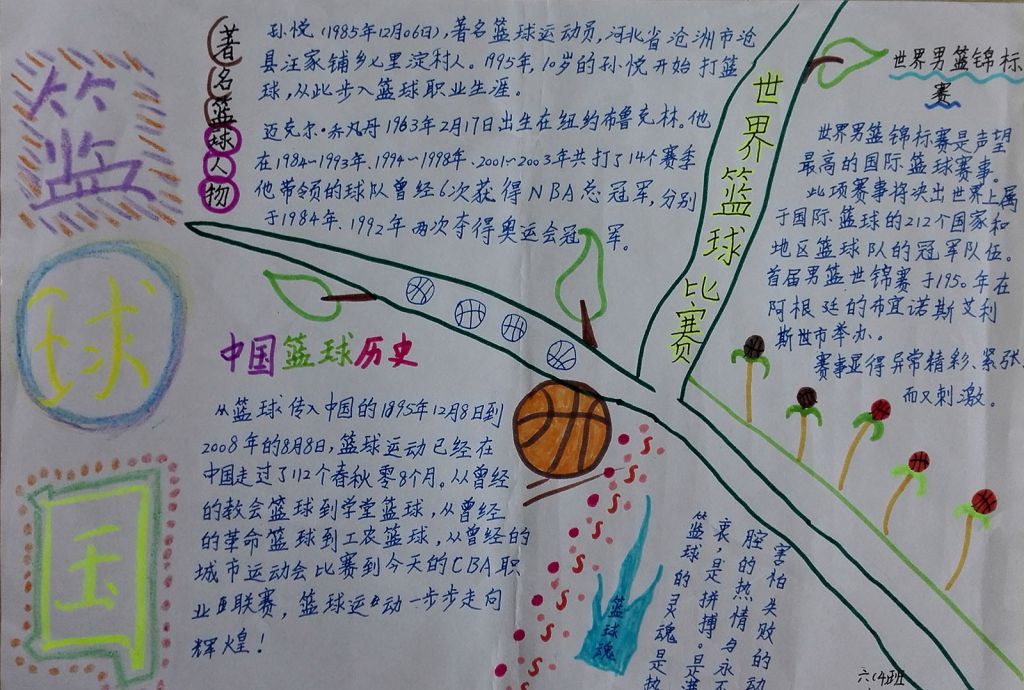 篮
球
国
著名篮球人物
孙悦(1985年12月06日),著名篮球运动员,河北省沧洲市沧
县汪家铺乡七里淀村人。1995年,10岁的孙悦开始打篮
球,从此步入篮球职业生涯。
迈克尔·乔凡丹1963年2月17日出生在纽约布鲁克林。他
在1984~1993年、1994~1998年、2001~2003年共打了14个赛季
他带领的球队曾经6次获得NBA总冠军,分别
于1984年、1992年两次夺得奥运会冠军。
世界篮球比赛
世界男篮锦标
赛
世界男篮锦标赛是声望
最高的国际篮球赛事。
此项赛事将决出世界上属
于国际篮球的212个国家和
地区篮球队的冠军队伍。
首届男篮世锦赛于1950年在
阿根廷的布宜诺斯艾利
斯世市举办。
赛事显得异常精彩、紧张、
而又刺激。
中国篮球历史
从篮球传入中国的1895年12月8日到
2008年的8月8日,篮球运动已经在
中国走过了112个春秋零8个月。从曾经
的教会篮球到学堂篮球,从曾经
的革命篮球到工农篮球,从曾经的
城市运动会比赛到今天的CBA职
业联赛,篮球运动一步步走向
辉煌!
篮球魂
害怕失败的动
腔的热情与永不
衰,是拼搏。是满
篮球的灵魂是热
六(4)班